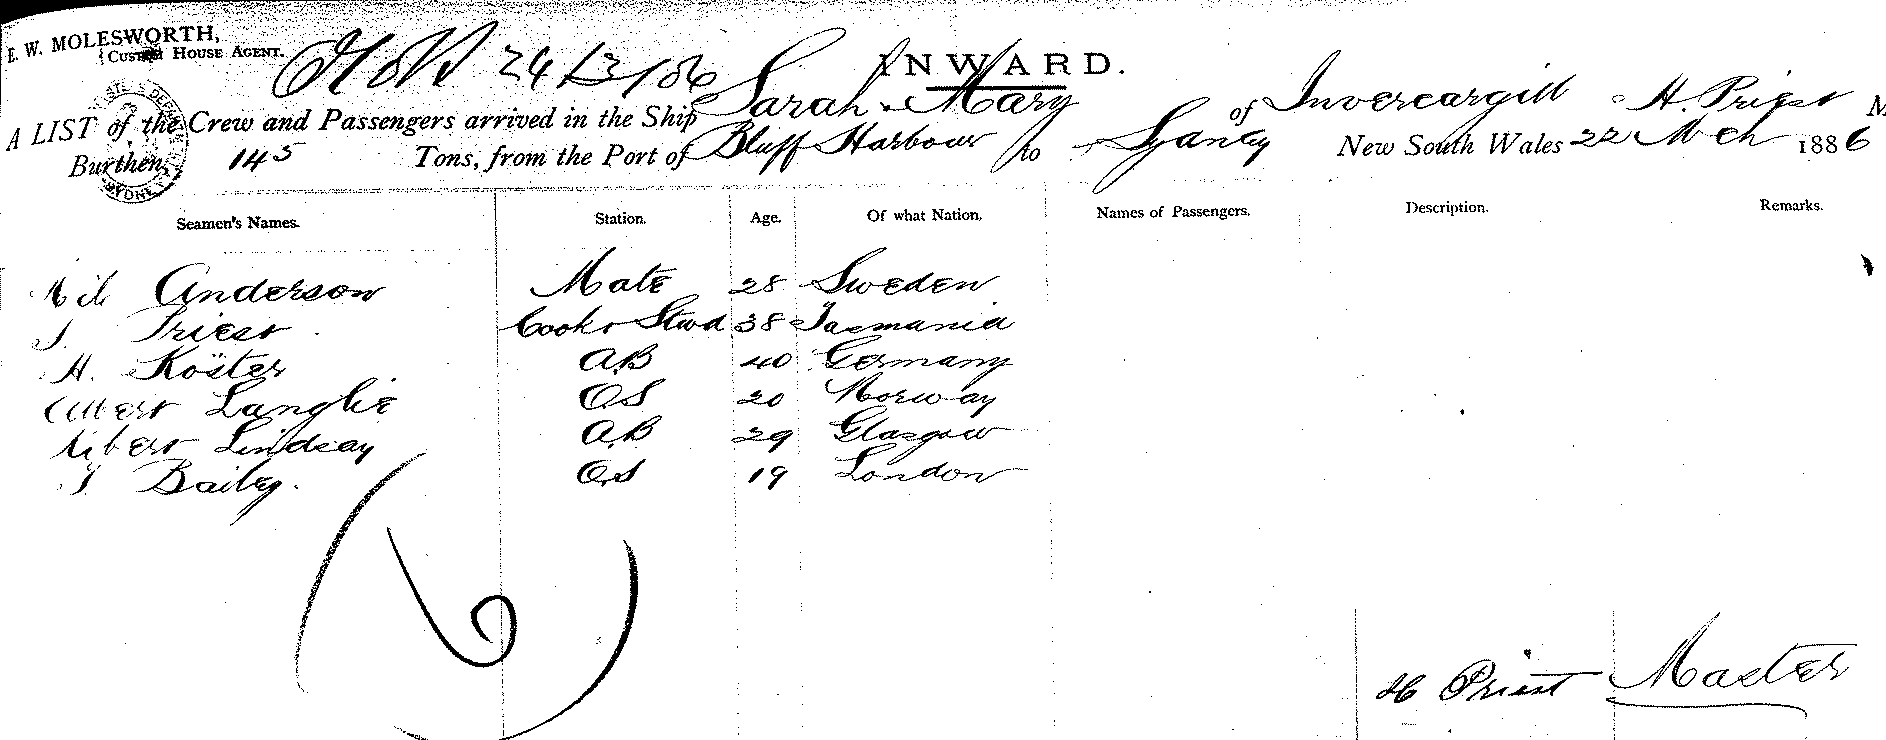 E. W. MOLESWORTH,
CUSTOM HOUSE AGENT.
24/3/86
INWARD.
A LIST of the Crew and Passengers arrived in the Ship Sarah & Mary of Invercargill H. Priest M
Burthen 145 Tons, from the Port of Bluff Harbour to Sydney New South Wales 22 Mch 1886
Seamen's Names. Station. Age. Of what Nation. Names of Passengers. Description. Remarks.
Anderson Mate 28 Sweden
Priest Cook & Stwd 38 Tasmania
H. Köster AB 40 Germany
Albert Langlie OS 20 Norway
Lindsay AB 29 Glasgow
Bailey. OS 19 London
(6)
H Priest Master